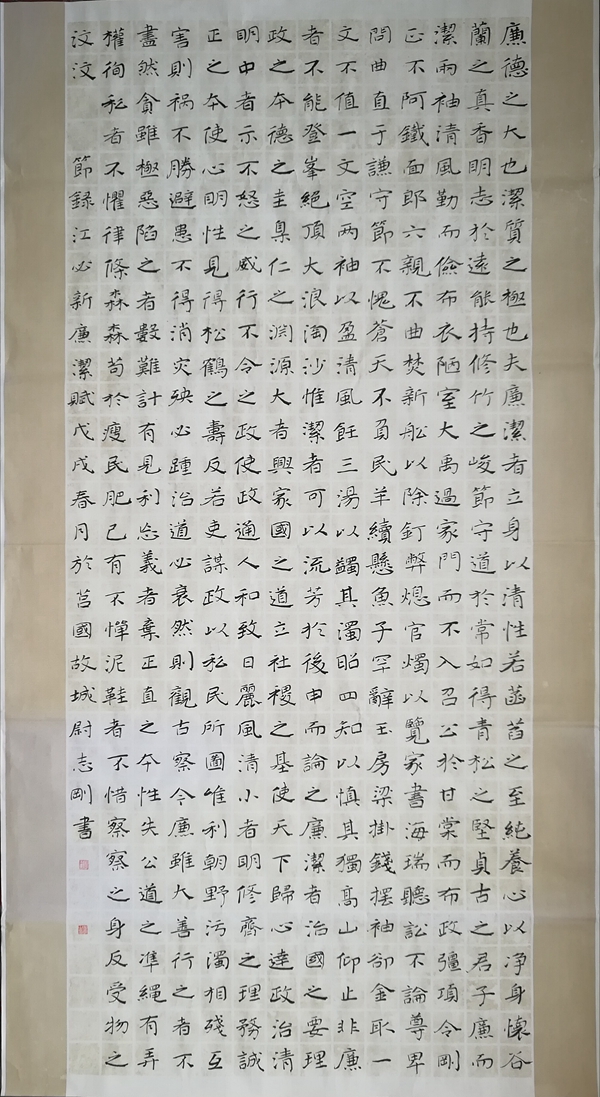 廉德之大也潔質之極也夫廉潔者立身以清性若菡萏之至純養心以净身懷谷
蘭之真香明志於遠能持修竹之峻節守道於常如得青松之堅貞古之君子廉而
潔兩袖清風勤而儉布衣陋室大禹過家門而不入召公於甘棠而布政彊項令剛
正不阿鐵面郎六親不曲焚新船以除釘弊熄官燭以覽家書海瑞聽訟不論尊卑
問曲直于謙守節不愧蒼天不負民羊續懸魚子罕辭玉房梁掛錢擺袖卻金取一
文不值一文空两袖以盈清風飪三湯以蠲其濁昭四知以慎其獨高山仰止非廉
者不能登峯絕頂大浪淘沙惟潔者可以流芳於後申而論之廉潔者治國之要理
政之本德之圭臬仁之渊源大者興家國之道立社稷之基使天下歸心達政治清
明中者示不怒之威行不令之政使政通人和致日麗風清小者明修齊之理務誠
正之本使心明性見得松鶴之壽反若吏謀政以私民所圖唯利朝野污濁相殘互
害則禍不勝避愚不得消灾殃必踵治道必衰然則觀古察今廉雖大善行之者不
盡然貪雖極惡陷之者數難計有見利忘義者棄正直之本性失公道之準繩有弄
權徇私者不懼律條森森苟於瘦民肥己有不憚泥鞋者不惜察察之身反受物之
汶汶 節録江必新廉潔賦戊戌春月於莒國故城尉志剛書